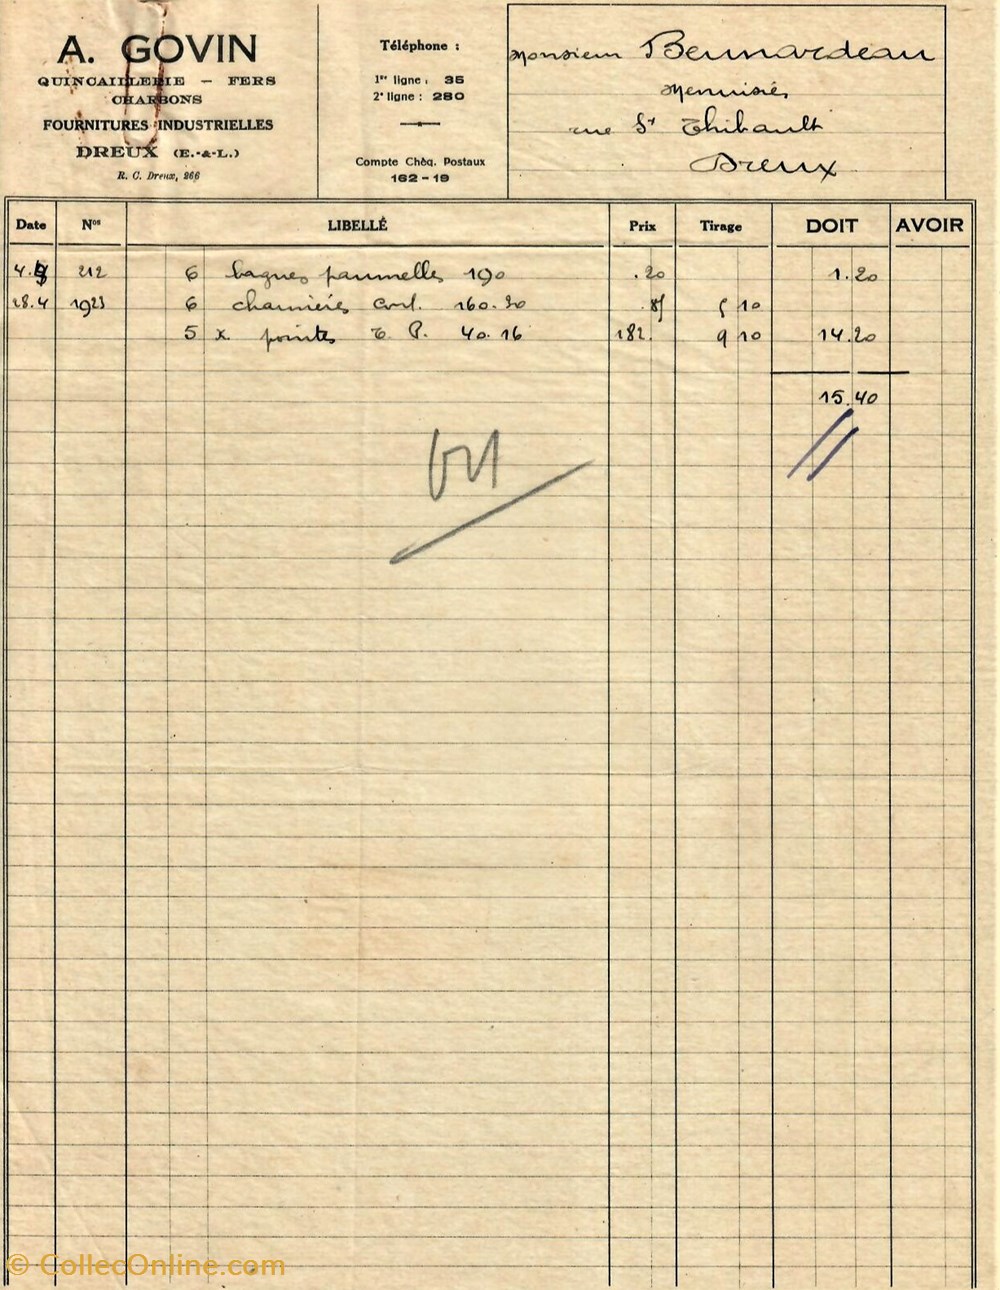 A. GOVIN
QUINCAILLERIE — FERS
CHARBONS
FOURNITURES INDUSTRIELLES
DREUX (E.-&-L.)
R. C. Dreux, 266
Téléphone :
1re ligne : 35
2e ligne : 280
Compte Chèq. Postaux
162-19
Monsieur Bernardeau
Menuisier
rue St Thibault
Dreux
Date Nos LIBELLÉ Prix Tirage DOIT AVOIR
4. 212 6 bagues paumelles 190 .20 1.20
28.4 1923 6 charnières 160.30 .85 5 10
5 K. pointes T. P. 40.16 182. 9 10 14.20
15.40
© CollecOnline.com